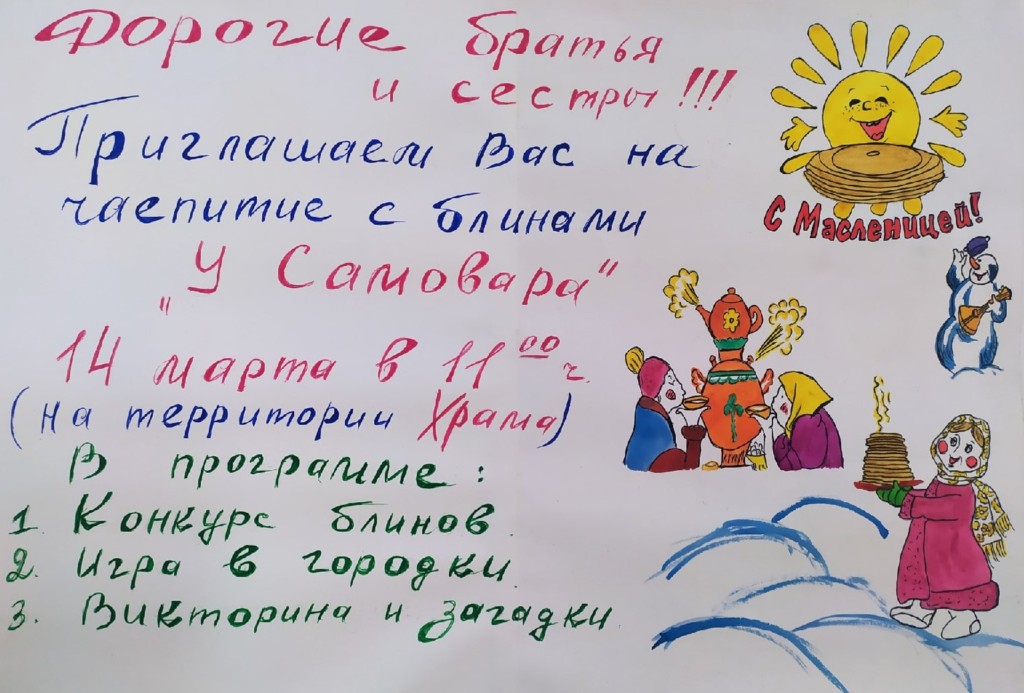 Дорогие братья
и сестры!!!
Приглашаем Вас на
чаепитие с блинами
„У Самовара“
14 марта в 11⁰⁰ ч.
(на территории Храма)
В программе:
1. Конкурс блинов
2. Игра в городки
3. Викторина и загадки
С Масленицей!